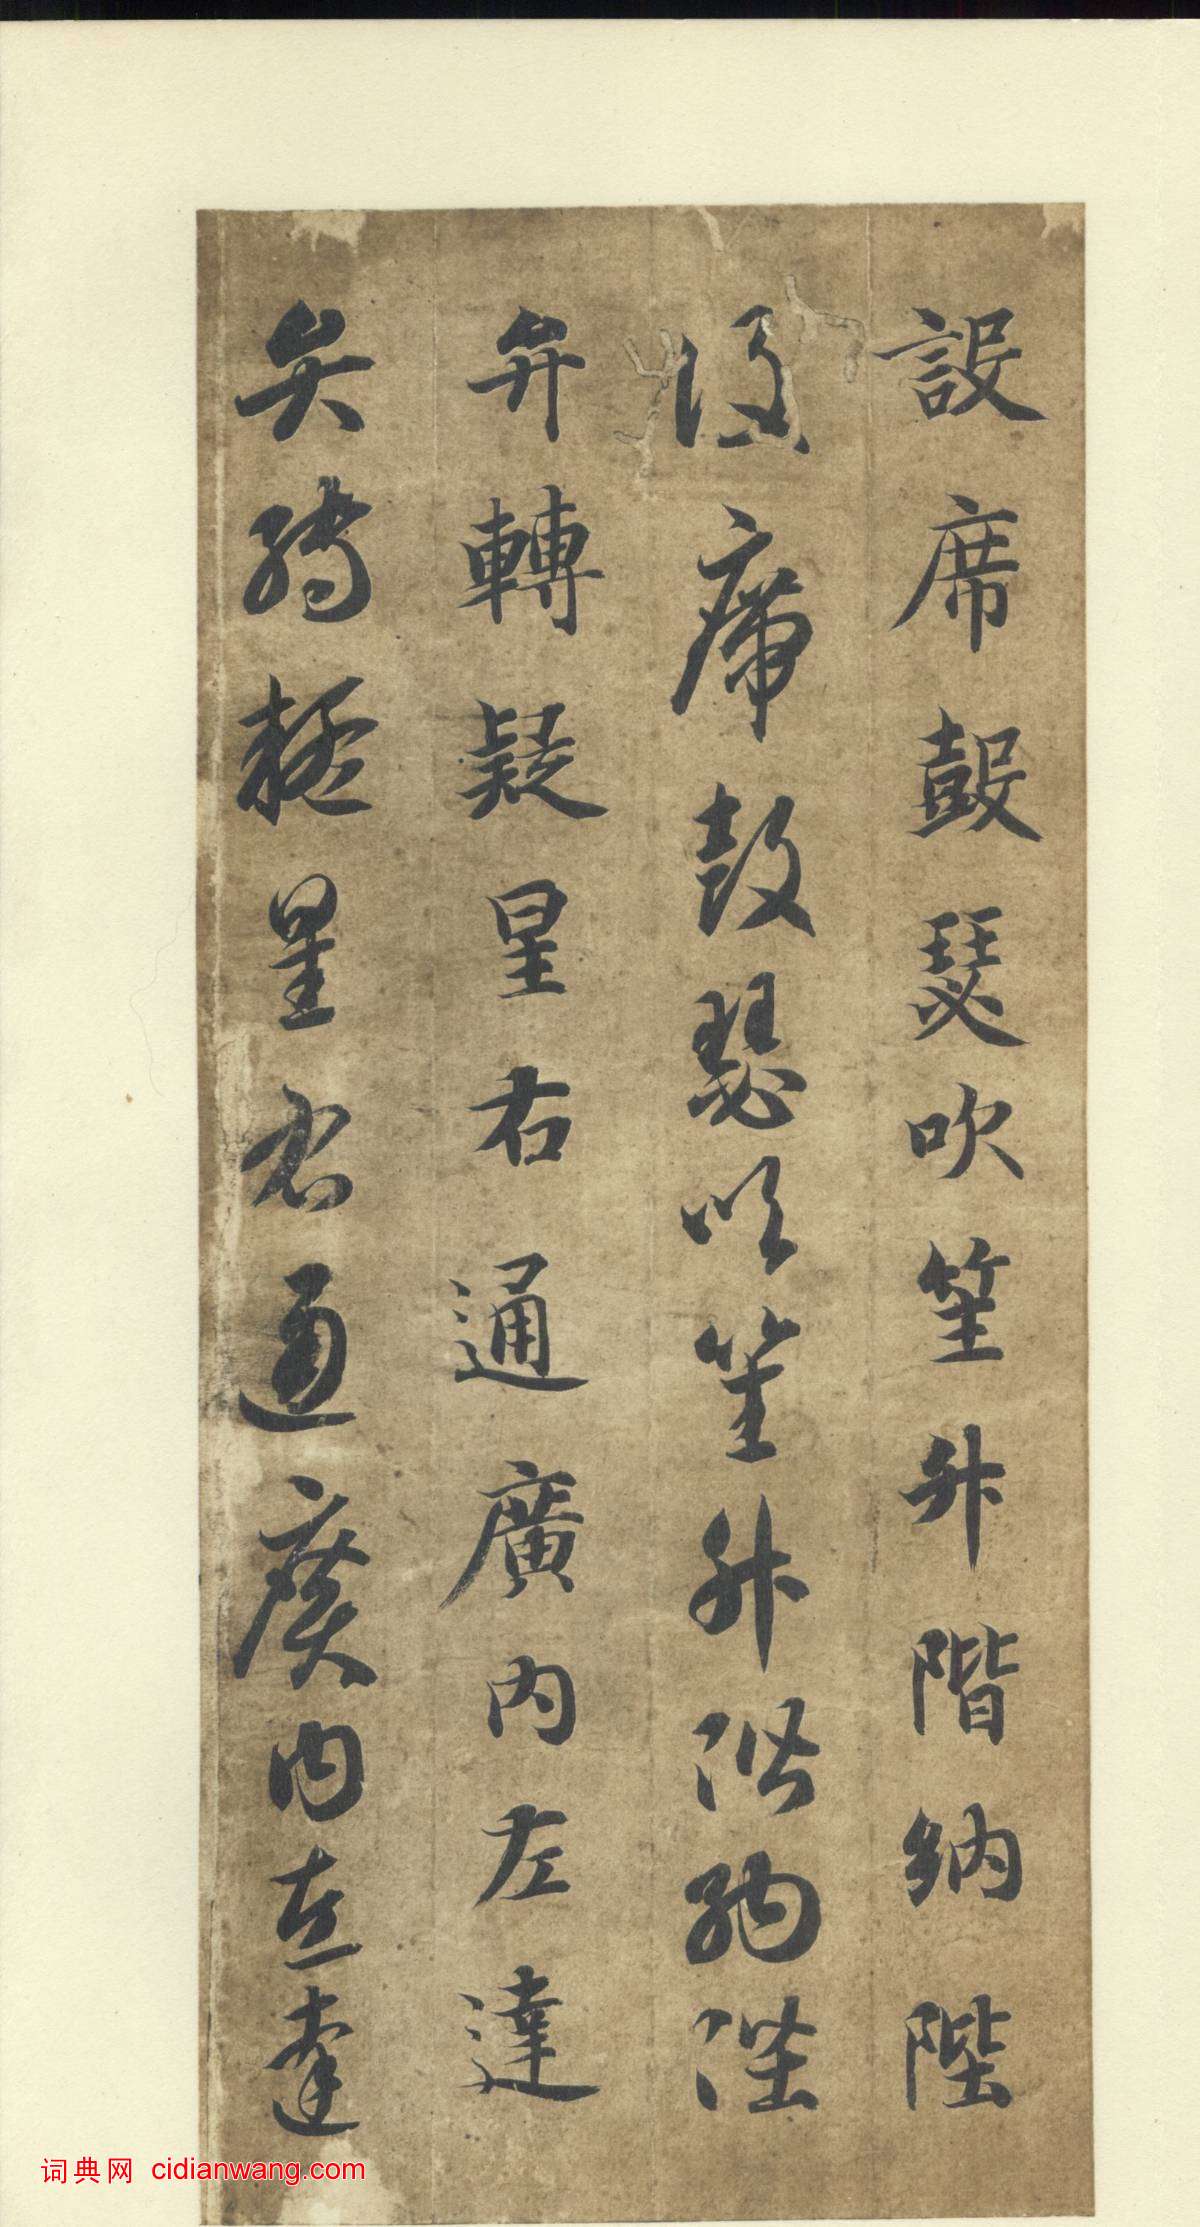 設席鼓瑟吹笙升階納陛
設席鼓瑟吹笙升階納陛
弁轉疑星右通廣內左達
弁轉疑星右通廣內左達
词典网 cidianwang.com